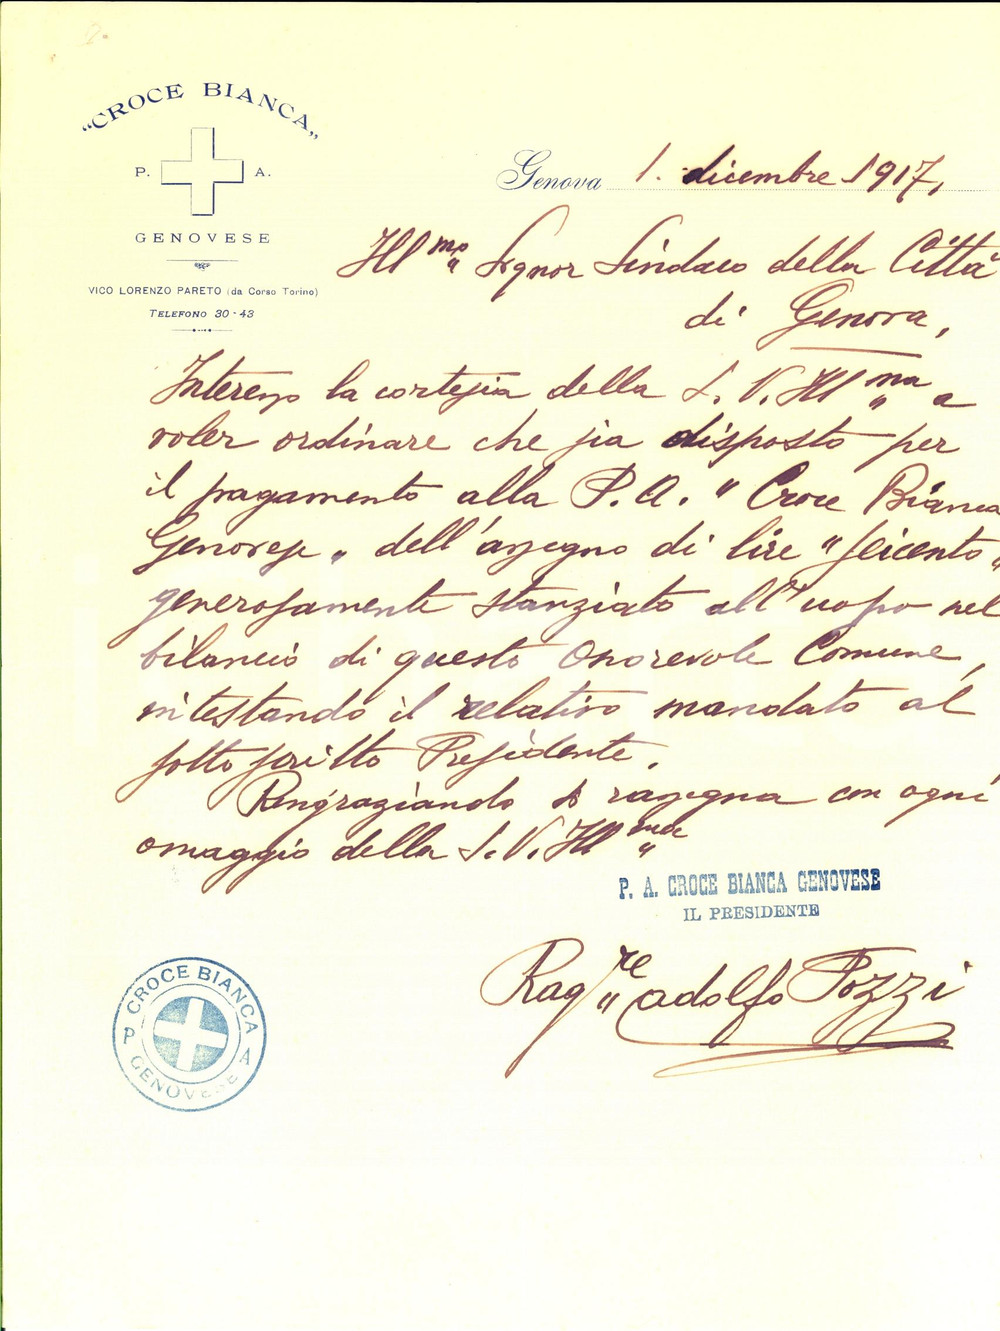 "CROCE BIANCA„
P. A.
GENOVESE
VICO LORENZO PARETO (da Corso Torino)
TELEFONO 30-43
Genova 1. dicembre 1917,
Ill.mo Signor Sindaco della Città
di Genova,
Interesso la cortesia della S. V. Ill.ma a
voler ordinare che sia disposto per
il pagamento alla P. A. "Croce Bianca
Genovese„ dell'assegno di lire "seicento„
generosamente stanziato all'uopo nel
bilancio di questo Onorevole Comune,
intestando il relativo mandato al
sottoscritto Presidente.
Ringraziando si rassegna con ogni
omaggio della S. V. Ill.ma
P. A. CROCE BIANCA GENOVESE
IL PRESIDENTE
Rag.re Adolfo Pozzi
CROCE BIANCA
P A
GENOVESE